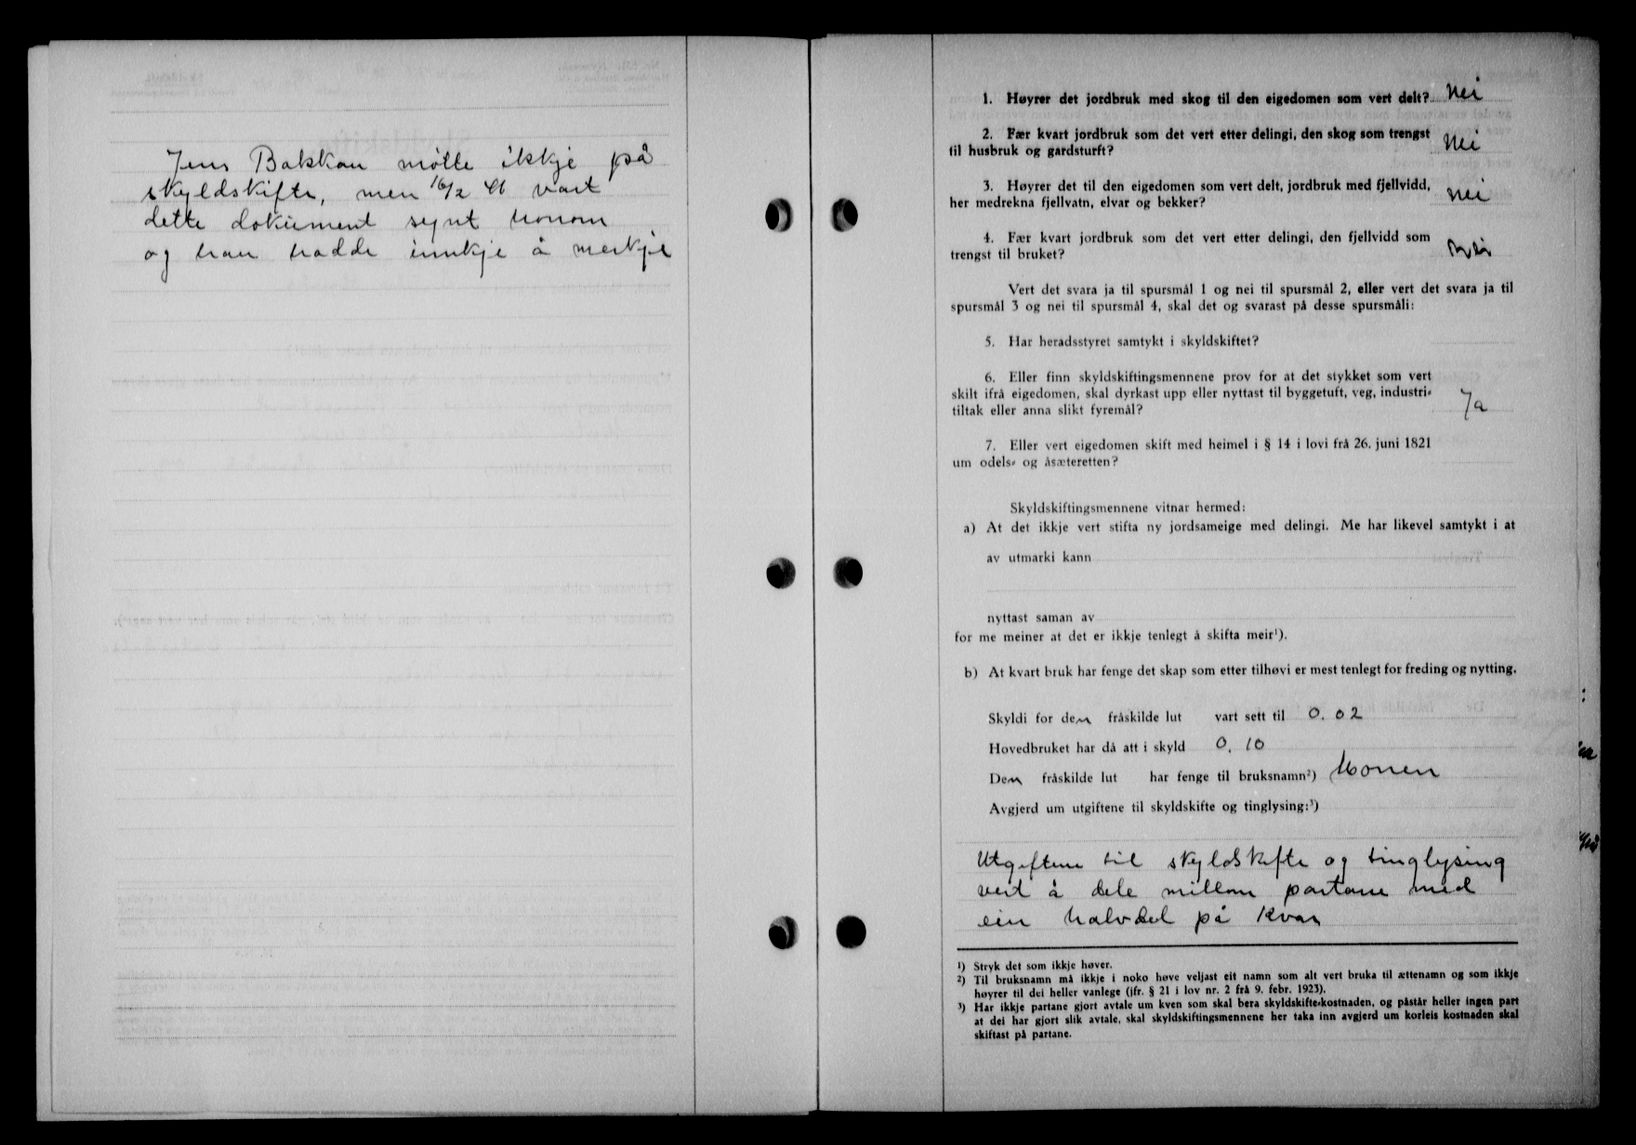 Jens Bakkan møtte ikkje på
skyldskifte, men 16/2 41 vart
dette dokument synt honom
og han hadde innkje å merkje
1. Høyrer det jordbruk med skog til den eigedomen som vert delt? Nei
2. Fær kvart jordbruk som det vert etter delingi, den skog som trengst
til husbruk og gardsturft? Nei
3. Høyrer det til den eigedomen som vert delt, jordbruk med fjellvidd,
her medrekna fjellvatn, elvar og bekker? Nei
4. Fær kvart jordbruk som det vert etter delingi, den fjellvidd som
trengst til bruket? Nei
Vert det svara ja til spursmål 1 og nei til spursmål 2, eller vert det svara ja til
spursmål 3 og nei til spursmål 4, skal det og svarast på desse spursmåli:
5. Har heradsstyret samtykt i skyldskiftet?
6. Eller finn skyldskiftingsmennene prov for at det stykket som vert
skilt ifrå eigedomen, skal dyrkast upp eller nyttast til byggetuft, veg, industri-
tiltak eller anna slikt fyremål? Ja
7. Eller vert eigedomen skift med heimel i § 14 i lovi frå 26. juni 1821
um odels- og åsæteretten?
Skyldskiftingsmennene vitnar hermed:
a) At det ikkje vert stifta ny jordsameige med delingi. Me har likevel samtykt i at
av utmarki kann
nyttast saman av
for me meiner at det er ikkje tenlegt å skifta meir¹).
b) At kvart bruk har fenge det skap som etter tilhøvi er mest tenlegt for freding og nytting.
Skyldi for den fråskilde lut vart sett til 0.02
Hovedbruket har då att i skyld 0,10
Den fråskilde lut har fenge til bruksnamn²) Monen
Avgjerd um utgiftene til skyldskifte og tinglysing:³)
Utgiftene til skyldskifte og tinglysing
vert å dele millom partane med
ein halvdel på kvar
¹) Stryk det som ikkje høver.
²) Til bruksnamn må ikkje i noko høve veljast eit namn som alt vert bruka til ættenamn og som ikkje
høyrer til dei heller vanlege (jfr. § 21 i lov nr. 2 frå 9. febr. 1923).
³) Har ikkje partane gjort avtale um kven som skal bera skyldskifte-kostnaden, og påstår heller ingen part
at dei har gjort slik avtale, skal skyldskiftingsmennene her taka inn avgjerd um korleis kostnaden skal
skiftast på partane.